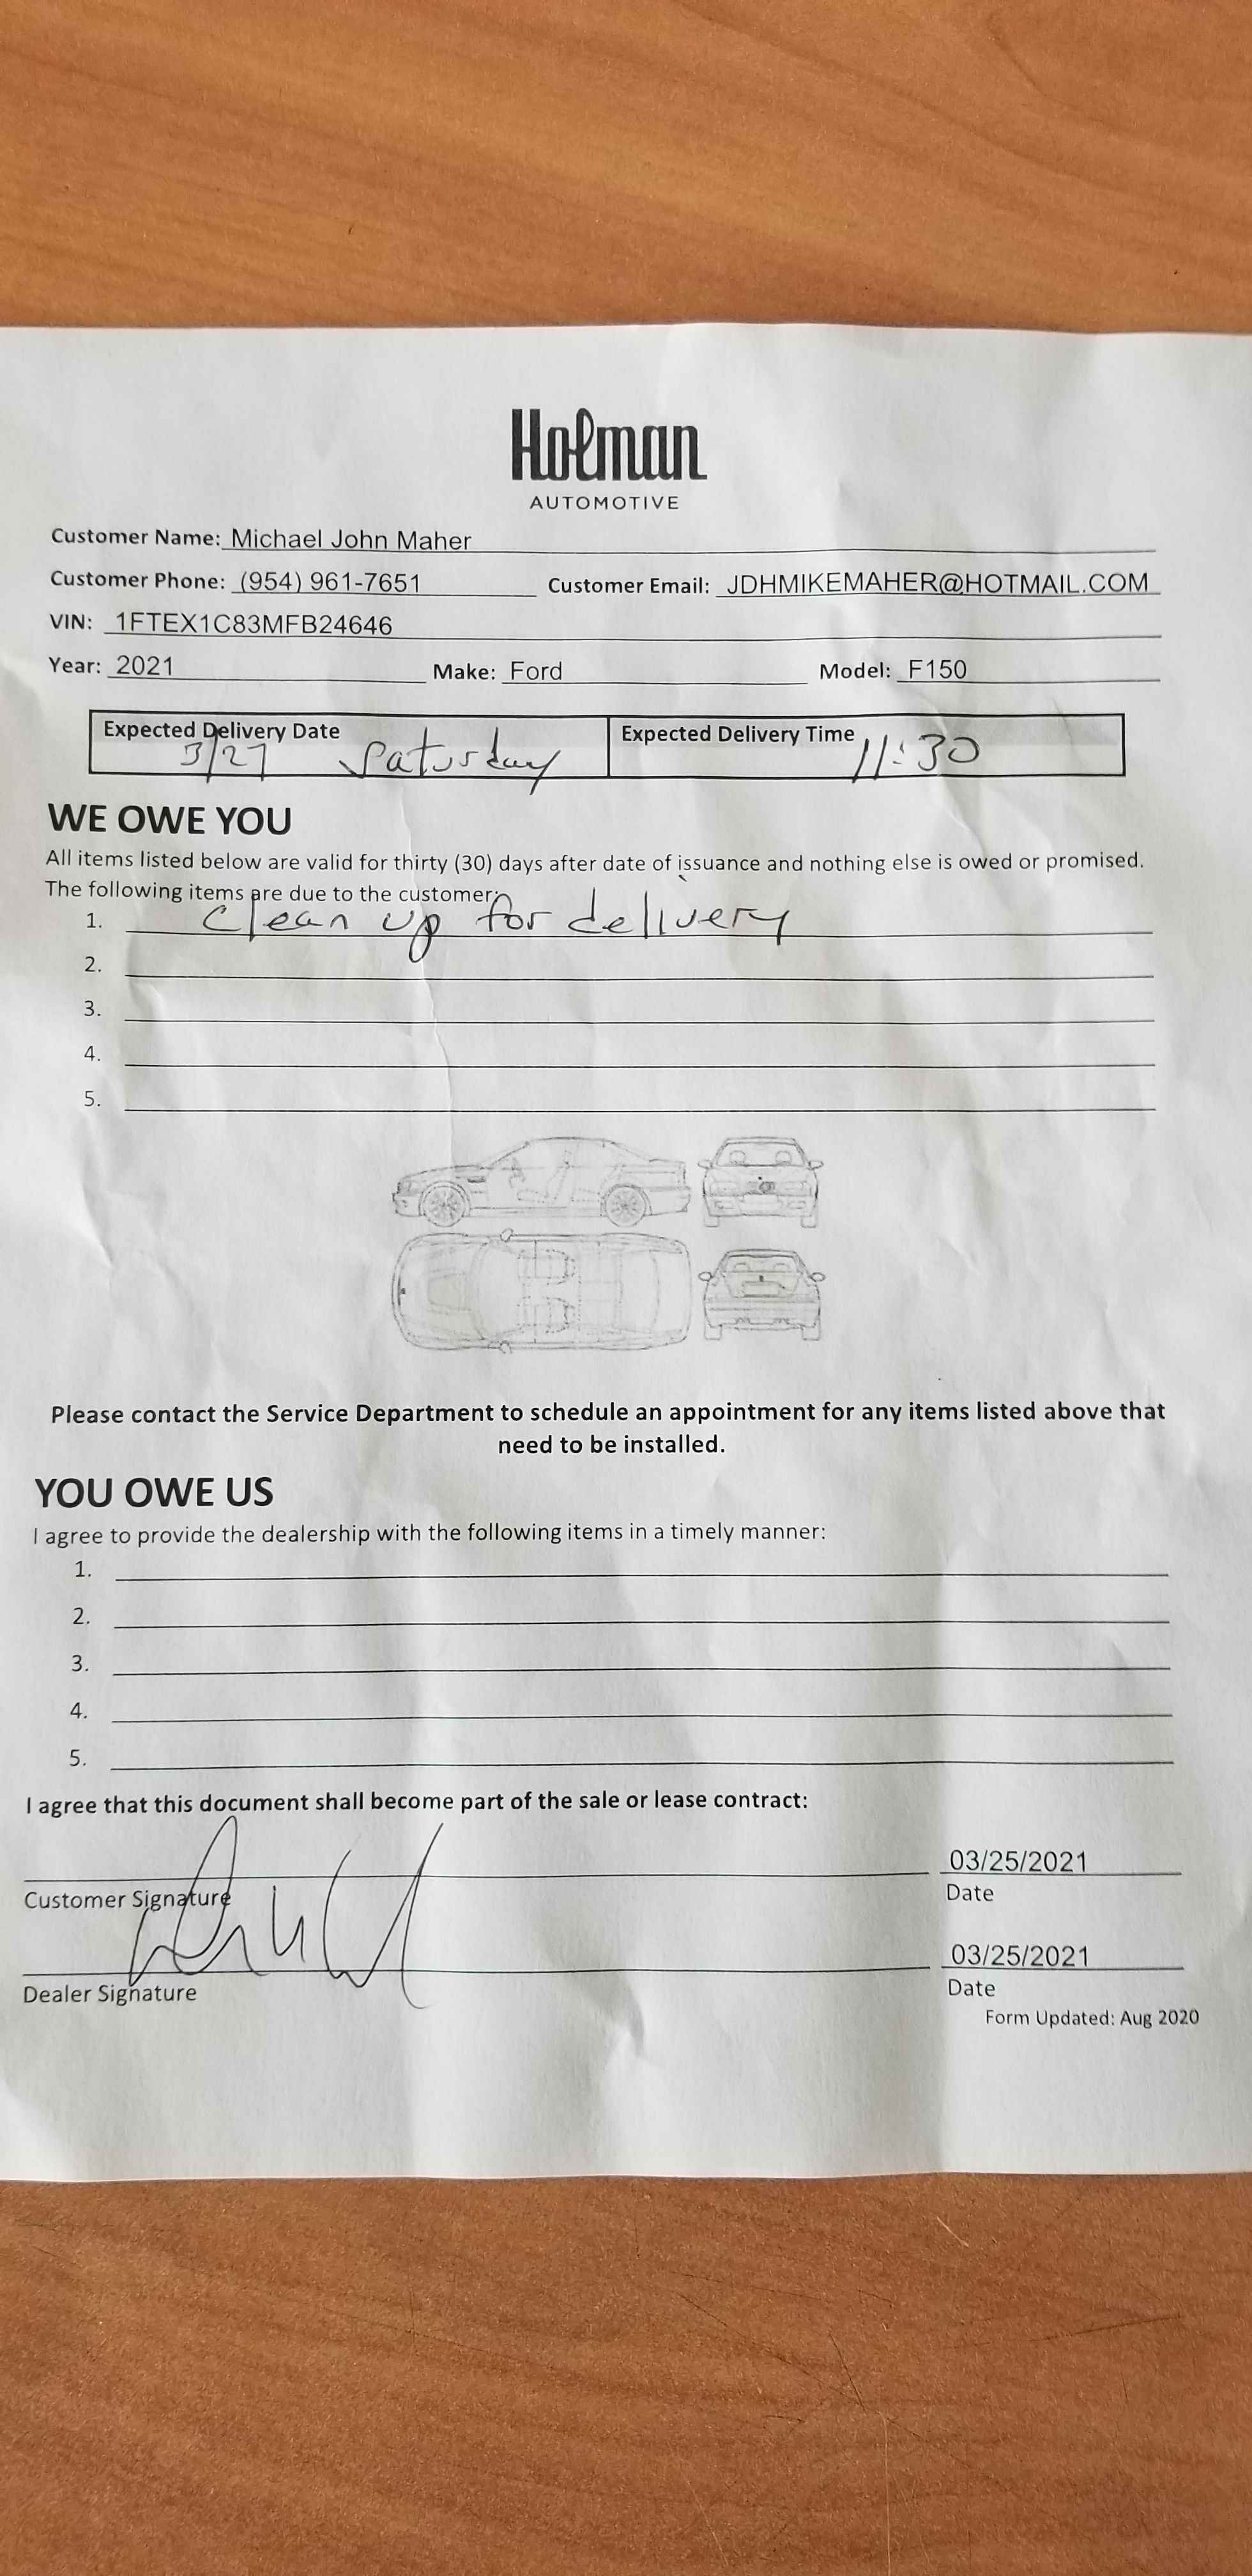 Holman
AUTOMOTIVE
Customer Name: Michael John Maher
Customer Phone: (954) 961-7651 Customer Email: JDHMIKEMAHER@HOTMAIL.COM
VIN: 1FTEX1C83MFB24646
Year: 2021 Make: Ford Model: F150
Expected Delivery Date Expected Delivery Time
3/27 Saturday 11:30
WE OWE YOU
All items listed below are valid for thirty (30) days after date of issuance and nothing else is owed or promised.
The following items are due to the customer:
1. Clean up for delivery
2.
3.
4.
5.
Please contact the Service Department to schedule an appointment for any items listed above that
need to be installed.
YOU OWE US
I agree to provide the dealership with the following items in a timely manner:
1.
2.
3.
4.
5.
I agree that this document shall become part of the sale or lease contract:
03/25/2021
Customer Signature Date
03/25/2021
Dealer Signature Date
Form Updated: Aug 2020